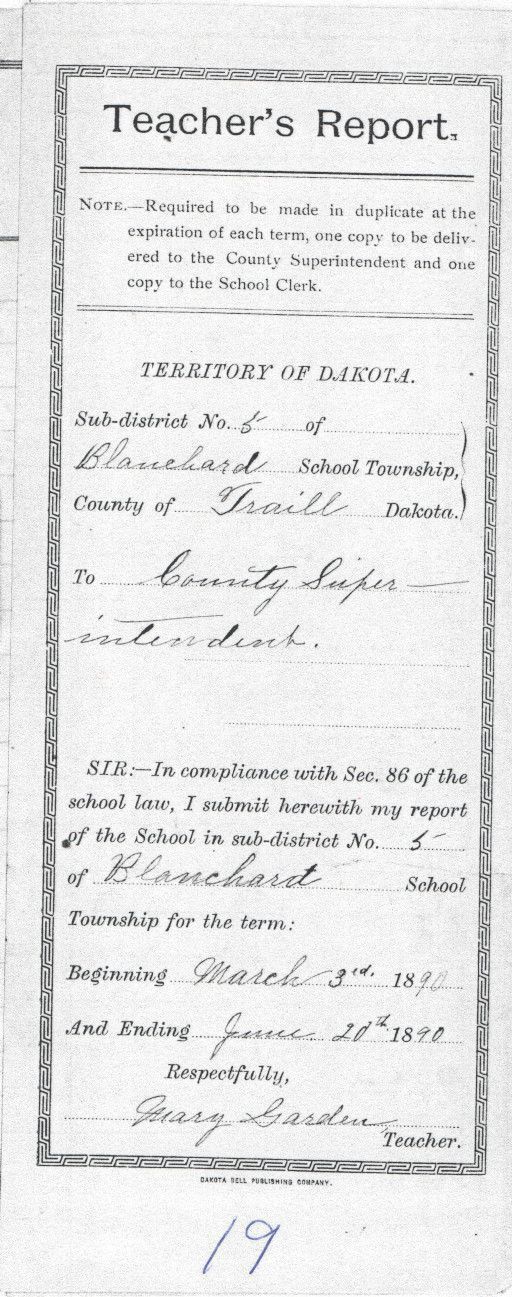 Teacher's Report.
NOTE.—Required to be made in duplicate at the
expiration of each term, one copy to be deliv-
ered to the County Superintendent and one
copy to the School Clerk.
TERRITORY OF DAKOTA.
Sub-district No. 5 of
Blanchard School Township,
County of Traill Dakota.
To County Super-
intendent.
SIR:—In compliance with Sec. 86 of the
school law, I submit herewith my report
of the School in sub-district No. 5
of Blanchard School
Township for the term:
Beginning March 3rd. 1890
And Ending June 20th 1890
Respectfully,
Mary Garden
Teacher.
DAKOTA BELL PUBLISHING COMPANY.
19